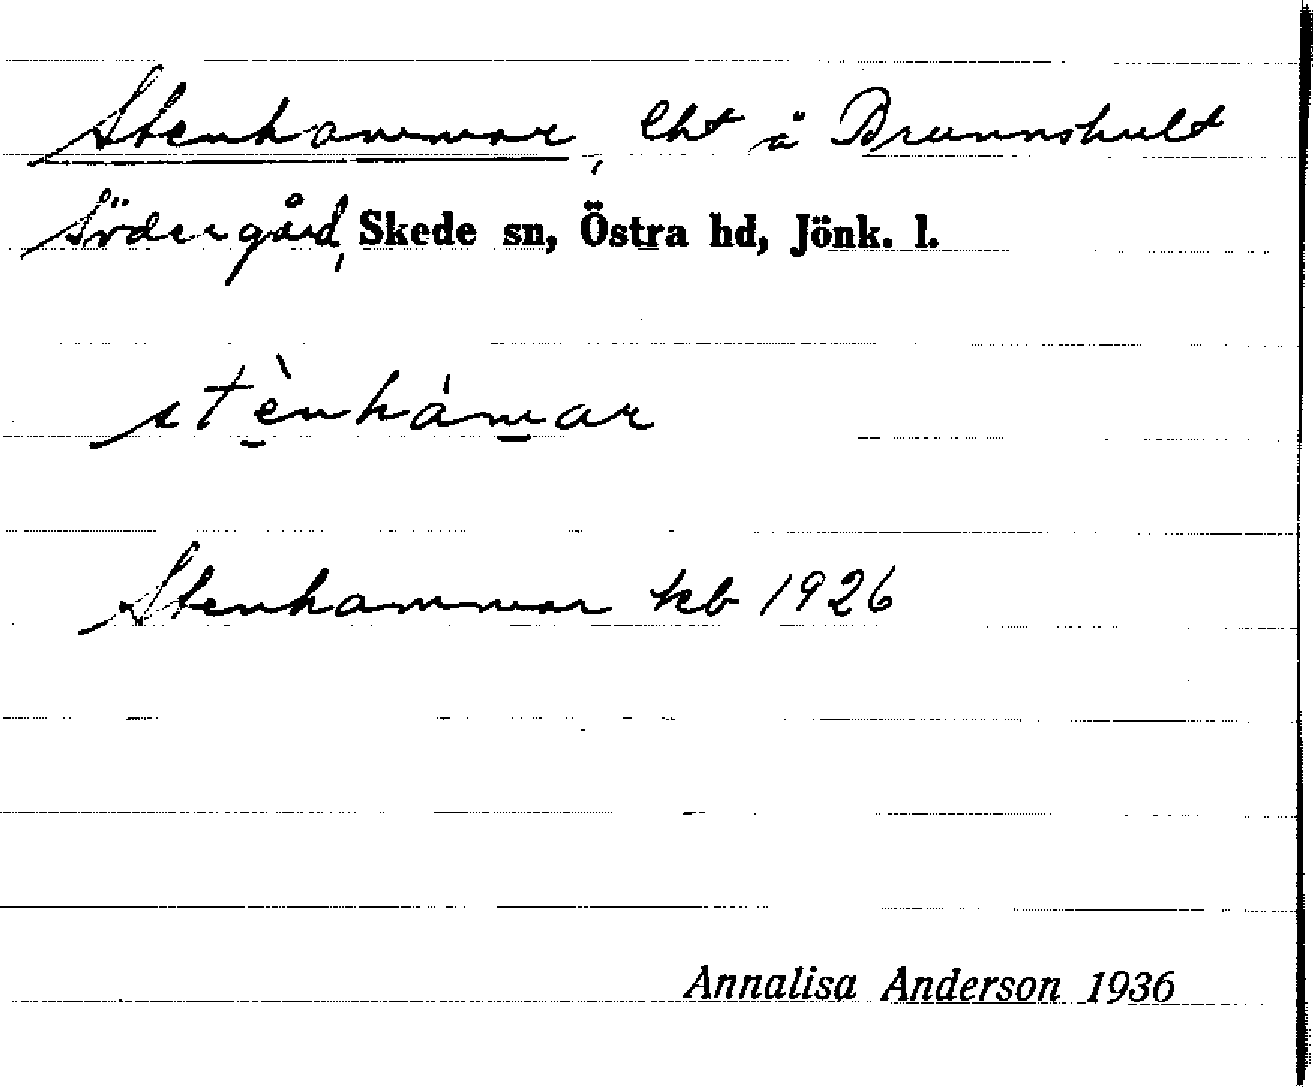 Stenhammar, lht å Brunnshult
Södergård, Skede sn, Östra hd, Jönk. l.
stènhámar
Stenhammar kb 1926
Annalisa Anderson 1936